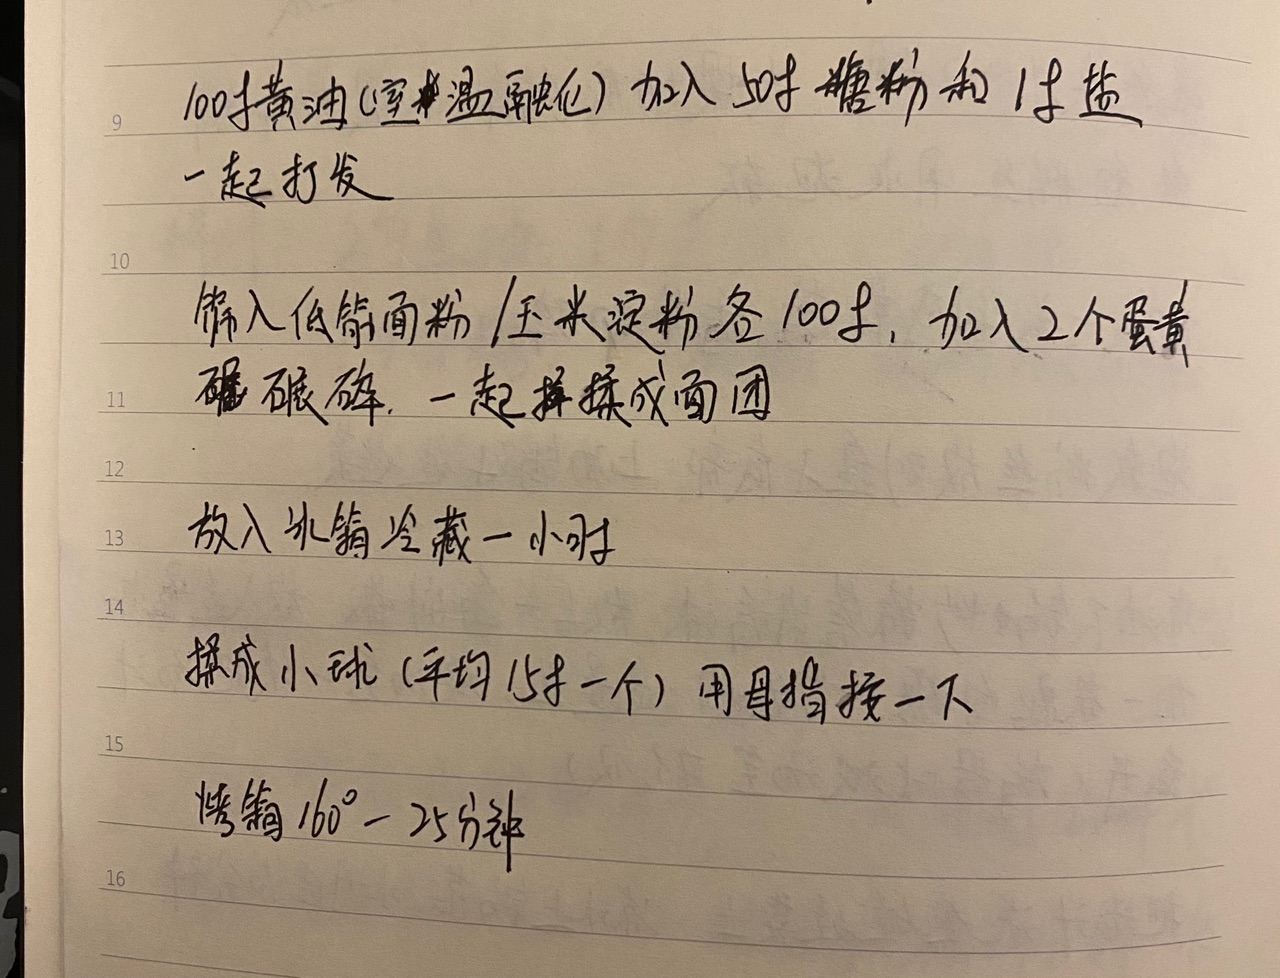 9
100g黄油(室温融化) 加入 50g 糖粉 和 1g 盐
一起打发
10
筛入低筋面粉/玉米淀粉各100g, 加入2个蛋黄
11
碾碎. 一起揉成面团
12
13
放入冰箱冷藏一小时
14
揉成小球(平均15g一个) 用母指按一下
15
烤箱160° - 25分钟
16